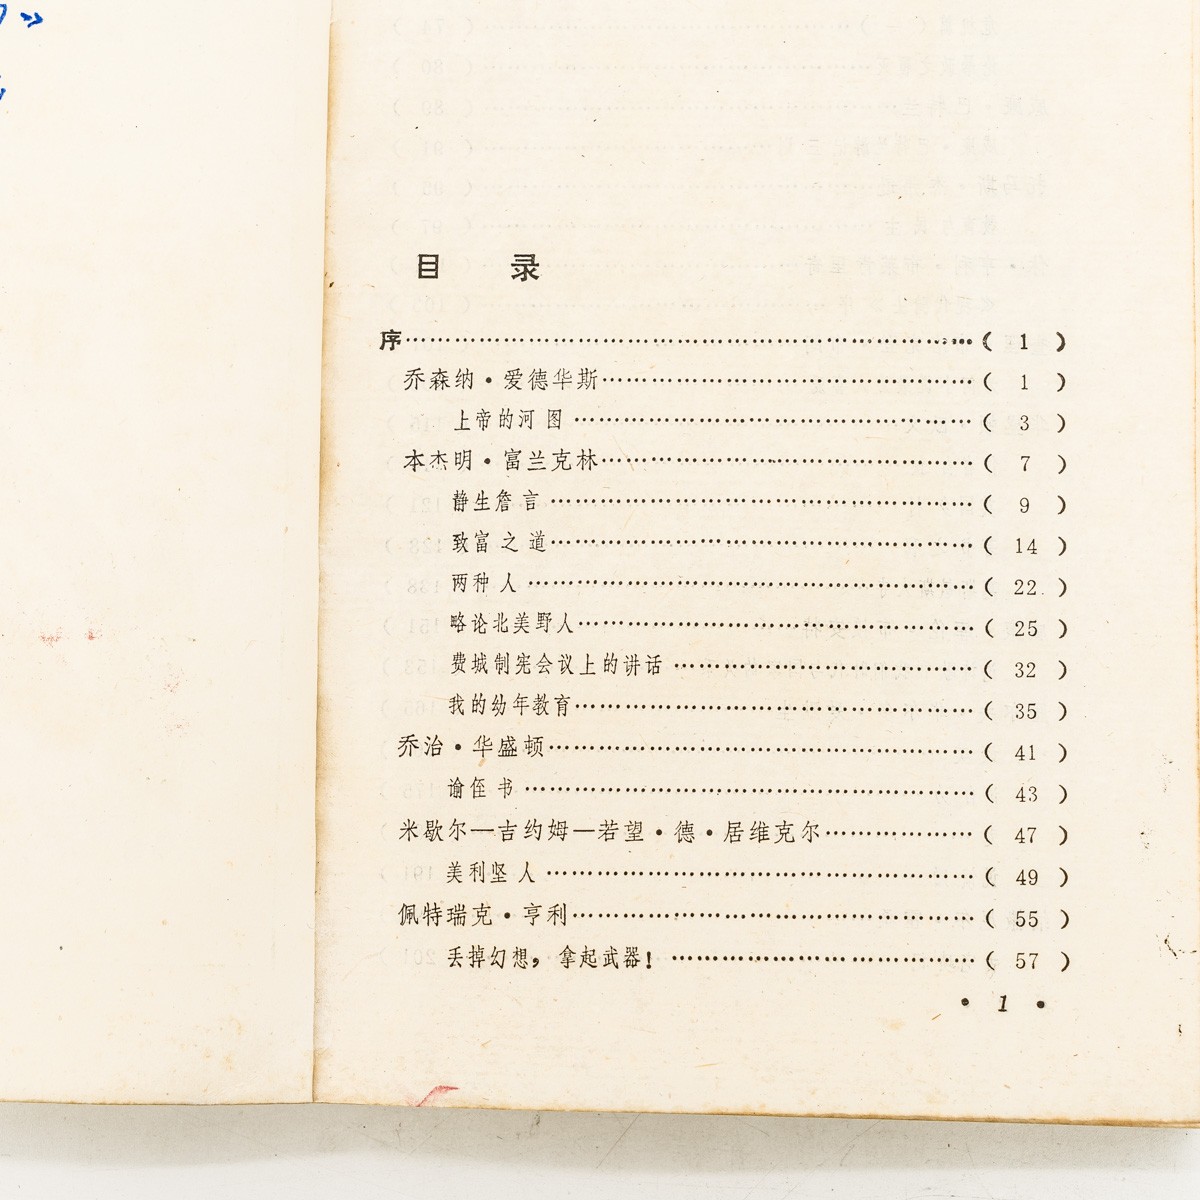 目 录
序……………………………………………………( 1 )
乔森纳·爱德华斯……………………………………( 1 )
上帝的河图……………………………………( 3 )
本杰明·富兰克林……………………………………( 7 )
静生詹言………………………………………( 9 )
致富之道………………………………………( 14 )
两种人…………………………………………( 22 )
略论北美野人…………………………………( 25 )
费城制宪会议上的讲话………………………( 32 )
我的幼年教育…………………………………( 35 )
乔治·华盛顿…………………………………………( 41 )
谕侄书…………………………………………( 43 )
米歇尔—吉约姆—若望·德·居维克尔……………( 47 )
美利坚人………………………………………( 49 )
佩特瑞克·亨利………………………………………( 55 )
丢掉幻想，拿起武器！………………………( 57 )
• 1 •